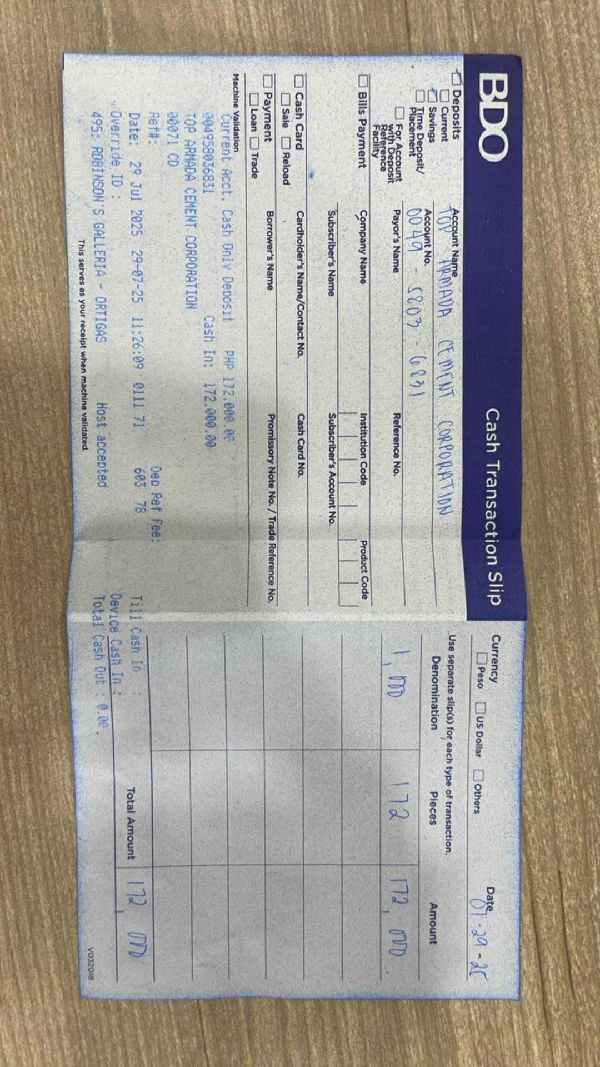 BDO
Cash Transaction Slip
Deposits
Current
Savings
Time Deposit/
Placement
For Account
with Deposit
Reference
Facility
Account Name
TOP ARMADA CEMENT CORPORATION
Account No.
0049 - 5803 - 6831
Payor's Name
Reference No.
Bills Payment
Company Name
Institution Code
Product Code
Subscriber's Name
Subscriber's Account No.
Cash Card
Sale
Reload
Cardholder's Name/Contact No.
Cash Card No.
Payment
Loan
Trade
Borrower's Name
Promissory Note No. / Trade Reference No.
Machine Validation
Current Acct. Cash Only Deposit PHP 172,000.00
004958036831 Cash In: 172,000.00
TOP ARMADA CEMENT CORPORATION
00071 CD
Ref#: Dep Ref Fee:
Date: 29 Jul 2025 29-07-25 11:26:09 0111 71 603 78
Override ID :
495: ROBINSON'S GALLERIA - ORTIGAS Host accepted
This serves as your receipt when machine validated.
Currency
Peso
US Dollar
Others
Date
07-29-25
Use separate slip(s) for each type of transaction.
Denomination
Pieces
Amount
1,000 172 172,000.
Till Cash In :
Device Cash In :
Total Cash Out : 0.00.
Total Amount
172,000
V032018